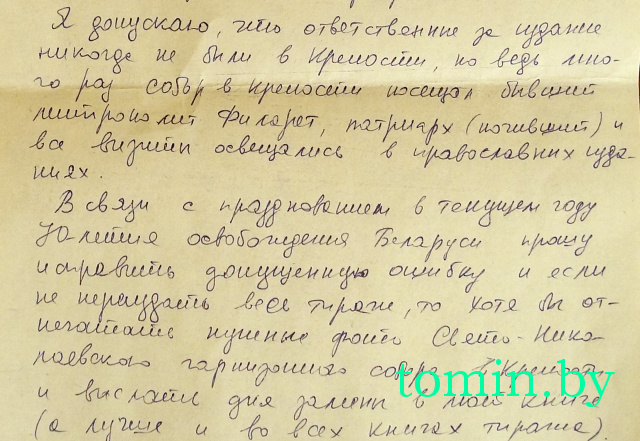 Я допускаю, что ответственные за издание
никогда не были в Крепости, но ведь мно-
го раз собор в Крепости посещал бывший
митрополит Филарет, патриарх (почивший) и
все визиты освещались в православных изда-
ниях.
В связи с празднованием в текущем году
70-летия освобождения Беларуси прошу
исправить допущенную ошибку и если
не переиздать весь тираж, то хотя бы от-
печатать нужные фото Свято-Нико-
лаевского гарнизонного собора в Крепости
и выслать для замены в моей книге
(а лучше и во всех книгах тиража).
tomin.by